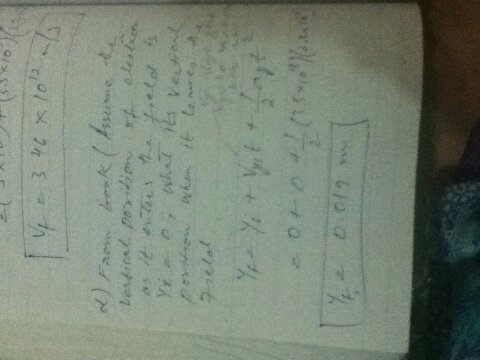 2(3.5×10
Vf = 3.46 × 10¹² m/s
d) From book (Assume the
vertical position of electron
as it enters the field is
Yi = 0, what its vertical
position when it leaves the
field
Yf = Yi + Vyi t + 1/2 ay t²
= 0 + 0 + 1/2 (3.5×10
Yf = 0.019 m